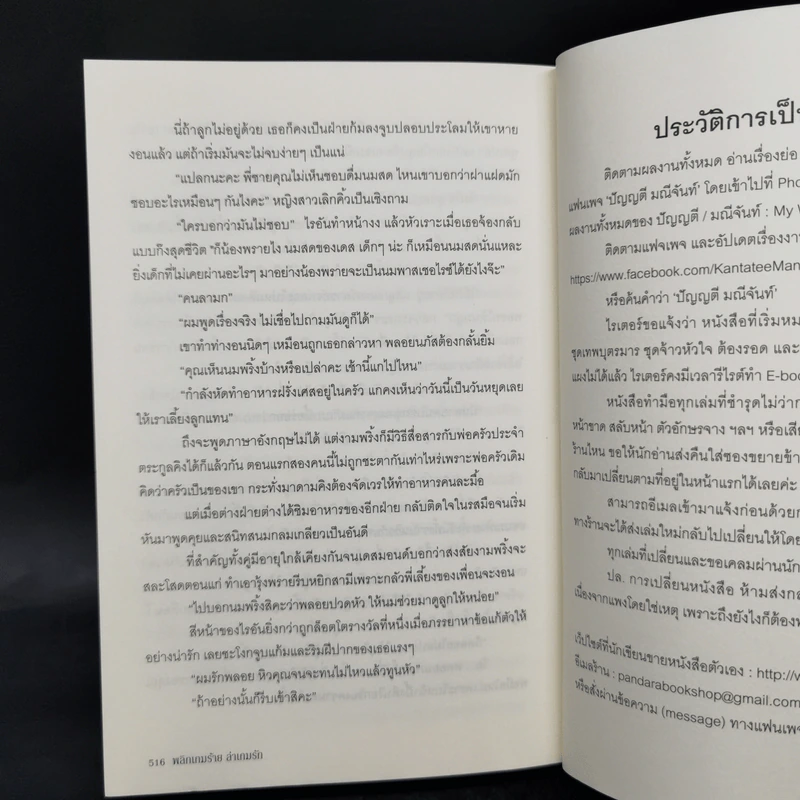 นี่ถ้าลูกไม่อยู่ด้วย เธอก็คงเป็นฝ่ายก้มลงจูบปลอบประโลมให้เขาหาย
งอนแล้ว แต่ถ้าเริ่มมันจะไม่จบง่ายๆ เป็นแน่
“แปลกนะคะ พี่ชายคุณไม่เห็นชอบดื่มนมสด ไหนเขาบอกว่าฝาแฝดมัก
ชอบอะไรเหมือนๆ กันไงคะ” หญิงสาวเลิกคิ้วเป็นเชิงถาม
“ใครบอกว่ามันไม่ชอบ” ไรอันทำหน้างง แล้วหัวเราะเมื่อเธอจ้องกลับ
แบบทึ่งสุดชีวิต “ก็น้องพรายไง นมสดของเดส เด็กๆ น่ะ ก็เหมือนนมสดนั่นแหละ
ยิ่งเด็กที่ไม่เคยผ่านอะไรๆ มาอย่างน้องพรายจะเป็นนมพาสเชอไรซ์ได้ยังไงจ๊ะ”
“คนลามก”
“ผมพูดเรื่องจริง ไม่เชื่อไปถามมันดูก็ได้”
เขาทำท่างอนนิดๆ เหมือนถูกเธอกล่าวหา พลอยนภัสต้องกลั้นยิ้ม
“คุณเห็นนมพริ้งบ้างหรือเปล่าคะ เช้านี้แกไปไหน”
“กำลังหัดทำอาหารฝรั่งเศสอยู่ในครัว แกคงเห็นว่าวันนี้เป็นวันหยุดเลย
ให้เราเลี้ยงลูกแทน”
ถึงจะพูดภาษาอังกฤษไม่ได้ แต่งามพริ้งก็มีวิธีสื่อสารกับพ่อครัวประจำ
ตระกูลคิงได้ก็แล้วกัน ตอนแรกสองคนนี้ไม่ถูกชะตากันเท่าไหร่เพราะพ่อครัวเดิม
คิดว่าครัวเป็นของเขา กระทั่งมาดามคิงต้องจัดเวรให้ทำอาหารคนละมื้อ
แต่เมื่อต่างฝ่ายต่างได้ชิมอาหารของอีกฝ่าย กลับติดใจในรสมือจนเริ่ม
หันมาพูดคุยและสนิทสนมกลมเกลียวเป็นอันดี
ที่สำคัญทั้งคู่มีอายุใกล้เคียงกันจนเดสมอนด์บอกว่าสงสัยงามพริ้งจะ
สละโสดตอนแก่ ทำเอารุ้งพรายรีบหยิกสามีเพราะกลัวพี่เลี้ยงของเพื่อนจะงอน
“ไปบอกนมพริ้งสิคะว่าพลอยปวดหัว ให้นมช่วยมาดูลูกให้หน่อย”
สีหน้าของไรอันยิ่งกว่าถูกล็อตโตรางวัลที่หนึ่งเมื่อภรรยาหาข้อแก้ตัวให้
อย่างน่ารัก เลยชะโงกจูบแก้มและริมฝีปากของเธอแรงๆ
“ผมรักพลอย หิวคุณจนจะทนไม่ไหวแล้วทูนหัว”
“ถ้าอย่างนั้นก็รีบเข้าสิคะ”
516 พลิกเกมร้าย ล่าเกมรัก
ประวัติการเป็น
ติดตามผลงานทั้งหมด อ่านเรื่องย่อ
แฟนเพจ ‘ปัญญตี มณีจันท์’ โดยเข้าไปที่ Pho
ผลงานทั้งหมดของ ปัญญตี / มณีจันท์ : My W
ติดตามแฟจเพจ และอัปเดตเรื่องงาน
https://www.facebook.com/KantateeMan
หรือค้นคำว่า ‘ปัญญตี มณีจันท์’
ไรเตอร์ขอแจ้งว่า หนังสือที่เริ่มหม
ชุดเทพบุตรมาร ชุดจ้าวหัวใจ ต้องรอด และ
แผงไม่ได้แล้ว ไรเตอร์คงมีเวลารีไรต์ทำ E-boo
หนังสือทำมือทุกเล่มที่ชำรุดไม่ว่าก
หน้าขาด สลับหน้า ตัวอักษรจาง ฯลฯ หรือเสีย
ร้านไหน ขอให้นักอ่านส่งคืนใส่ซองขยายข้า
กลับมาเปลี่ยนตามที่อยู่ในหน้าแรกได้เลยค่ะ
สามารถอีเมลเข้ามาแจ้งก่อนด้วยก
ทางร้านจะได้ส่งเล่มใหม่กลับไปเปลี่ยนให้โดย
ทุกเล่มที่เปลี่ยนและขอเคลมผ่านนัก
ปล. การเปลี่ยนหนังสือ ห้ามส่งกล
เนื่องจากแพงโดยใช่เหตุ เพราะถึงยังไงก็ต้องพ
เว็บไซต์ที่นักเขียนขายหนังสือตัวเอง : http://w
อีเมลร้าน : pandarabookshop@gmail.com
หรือสั่งผ่านข้อความ (message) ทางแฟนเพจ